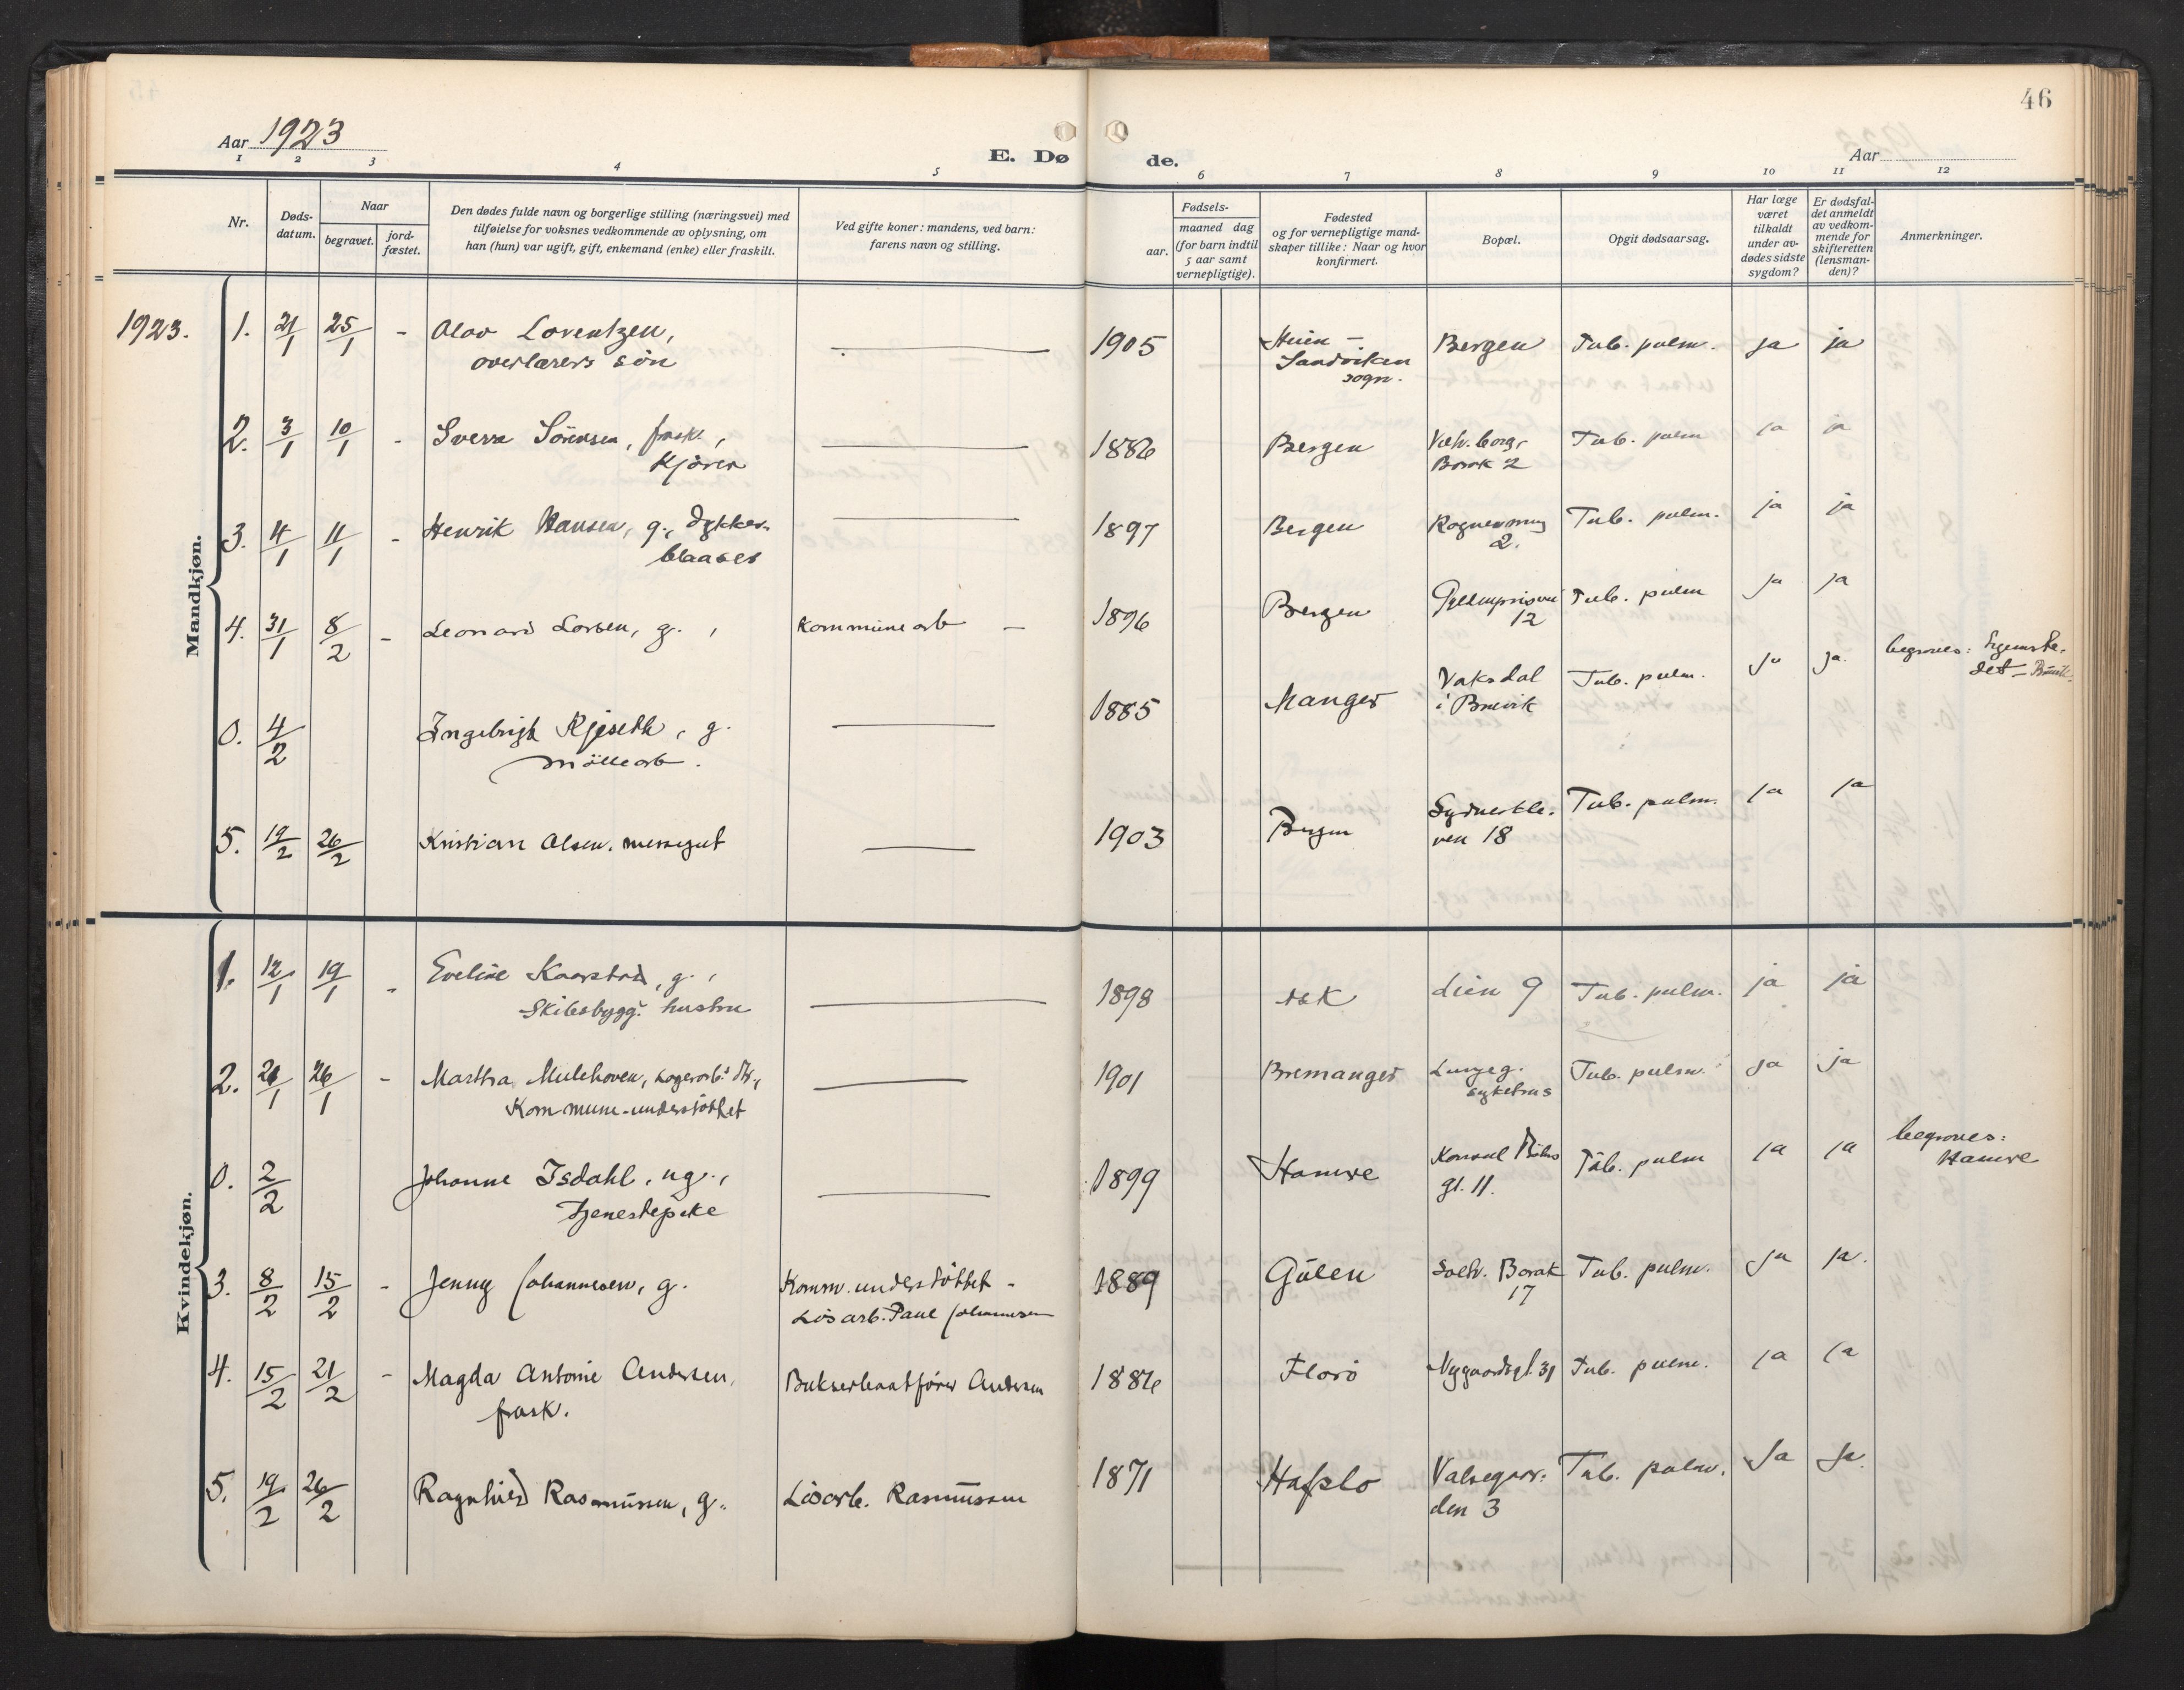 46
Aar 1923
E. Døde.
Aar
1 2 3 4 5 6 7 8 9 10 11 12
Nr.
Døds-
datum.
Naar
begravet.
jord-
fæstet.
Den dødes fulde navn og borgerlige stilling (næringsvei) med
tilføielse for voksnes vedkommende av oplysning, om
han (hun) var ugift, gift, enkemand (enke) eller fraskilt.
Ved gifte koner: mandens, ved barn:
farens navn og stilling.
Fødsels-
aar.
maaned dag
(for barn indtil
5 aar samt
vernepligtige).
Fødested
og for vernepligtige mand-
skaper tillike: Naar og hvor
konfirmert.
Bopæl.
Opgit dødsaarsag.
Har læge
været
tilkaldt
under av-
dødes sidste
sygdom?
Er dødsfal-
det anmeldt
av vedkom-
mende for
skifteretten
(lensman-
den)?
Anmerkninger.
Mandkjøn.
1923. 1. 21/1 25/1 - Olav Lorentzen, 1905 Bergen Tub. pulm. ja ja
overlærers søn Sandviken
sogn.
2. 3/1 10/1 - Sverre Sörensen, frask., 1886 Bergen Tub. pulm ja ja
Kjörer Borak 2
3. 4/1 11/1 - Henrik Hansen, g., dykker- 1897 Bergen Tub. pulm. ja ja
blaaser 2.
4. 31/1 8/2 - Leonard Larsen, g., Kommunearb - 1896 Bergen Tub. pulm ja ja
12
0. 4/2 Ingebrigt Kjeseth, g. 1885 Manger Vaksdal Tub. pulm. ja ja. begraves: hjemste-
möllearb. i Bruvik det - Bruvik.
5. 19/2 26/2 Kristian Olsen, messegut 1903 Bergen Sydneskle- Tub. pulm. ja ja
ven 18
Kvindekjøn.
1. 12/1 19/1 - Eveline Kaarstad, g., 1898 Ask Lien 9 Tub. pulm. ja ja
Skibsbygg. hustru
2. 21/1 26/1 - Martha Mulehoven, lagerarb. dtr., 1901 Bremanger Lungeg. Tub. pulm. ja ja
Kommune-understöttet sykehus
0. 2/2 Johanne Isdahl, ug., 1899 Hamre Konsul Tub. pulm ja ja begraves:
tjenestepike gt. 11. Hamre
3. 8/2 15/2 - Jenny Johannesen, g. Komm. understöttet - 1889 Gulen Solh. Borak Tub. pulm. ja ja.
Lösarb. Paul Johannesen 17
4. 15/2 21/2 - Magda Antonie Andersen, Bukserbaatförer Andersen 1886 Florö Nygaardsgt. 31 Tub. pulm. ja ja
frask.
5. 19/2 26/2 Ragnhild Rasmussen, g. Lösarb. Rasmussen 1871 Hafslo Valsegaar- Tub. pulm. Ja Ja.
den 3